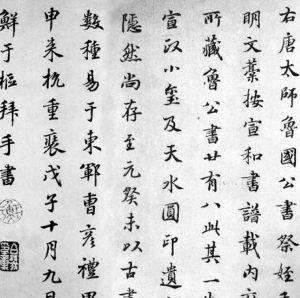 右唐太師魯國公書祭姪
明文藁按宣和書譜載內
所藏魯公書廿有八此其一
宣政小璽及天水圓印遺
隱然尚存至元癸未以古書
數種易于東鄆曹彥禮甲
申來杭重裝戊子十月九日
鮮于樞拜手書